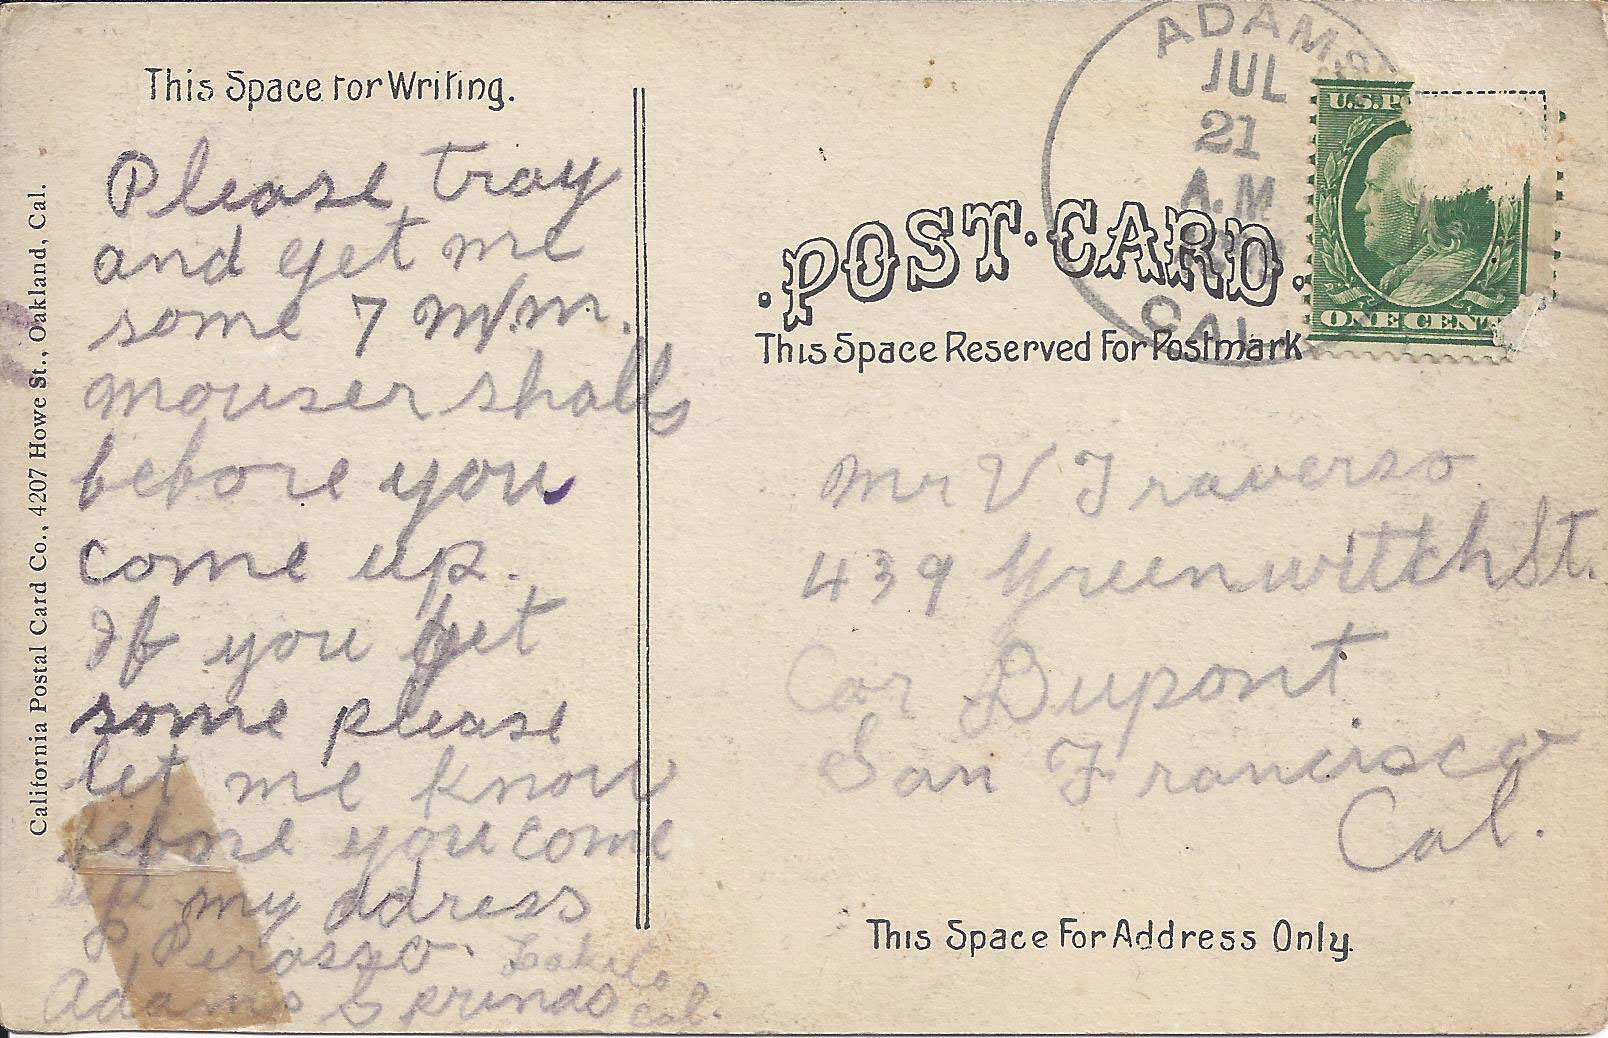 This Space for Writing.
Please tray
and get me
some 7 M/m.
mouser shalls
before you
come up.
If you get
some please
let me know
before you come
up my adress
Perasso. Lake Co
Adams Springs Cal.
California Postal Card Co., 4207 Howe St., Oakland, Cal.
ADAMS
JUL
21
A.M
CAL
U.S.PO
ONE CENT
POST CARD.
This Space Reserved For Postmark
Mr V Traverso
439 Greenwittch St.
Cor Dupont
San Francisco
Cal.
This Space For Address Only.